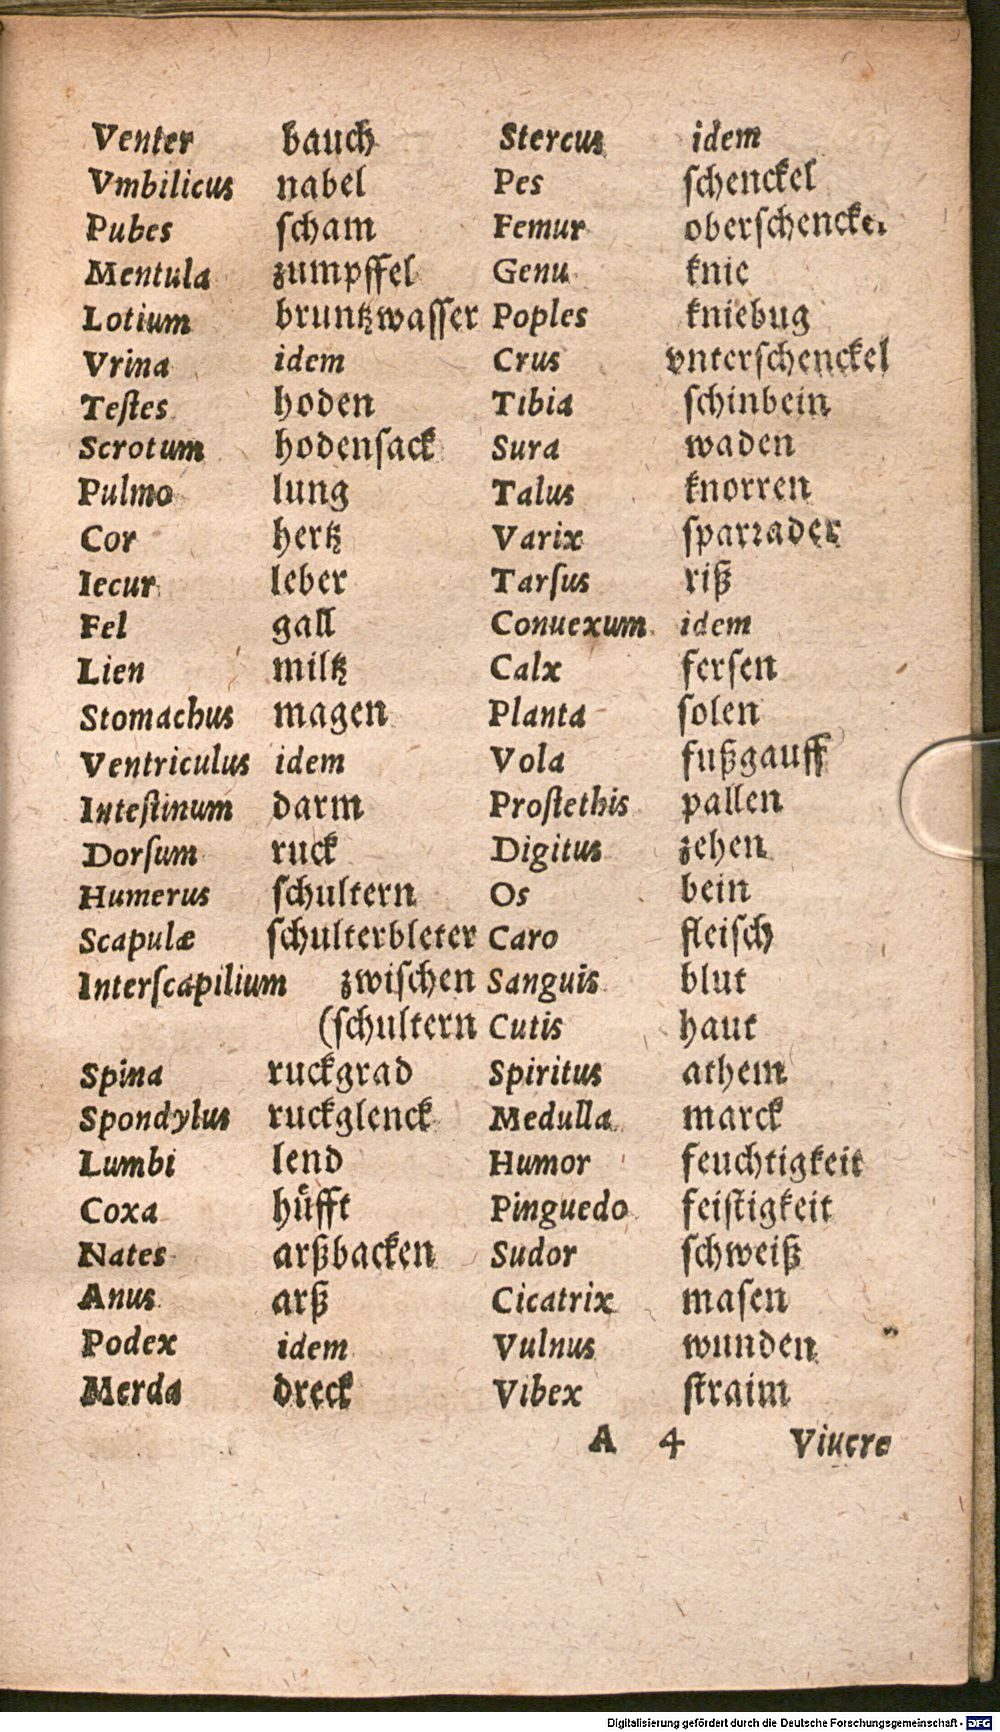 Venter bauch
Vmbilicus nabel
Pubes scham
Mentula zumpffel
Lotium bruntzwasser
Vrina idem
Teſtes hoden
Scrotum hodenſack
Pulmo lung
Cor hertz
Iecur leber
Fel gall
Lien miltz
Stomachus magen
Ventriculus idem
Inteſtinum darm
Dorſum ruck
Humerus ſchultern
Scapulæ ſchulterbleter
Interſcapilium zwiſchen
(ſchultern
Spina ruckgrad
Spondylus ruckglenck
Lumbi lend
Coxa huͤfft
Nates arßbacken
Anus arß
Podex idem
Merda dreck
Stercus idem
Pes ſchenckel
Femur oberſchenckel
Genu knie
Poples kniebug
Crus vnterſchenckel
Tibia ſchinbein
Sura waden
Talus knorren
Varix ſparꝛader
Tarſus riß
Conuexum idem
Calx ferſen
Planta ſolen
Vola fußgauff
Proſtethis pallen
Digitus zehen
Os bein
Caro fleiſch
Sanguis blut
Cutis haut
Spiritus athem
Medulla marck
Humor feuchtigkeit
Pinguedo feiſtigkeit
Sudor ſchweiß
Cicatrix maſen
Vulnus wunden
Vibex ſtraim
A 4 Viuere
Digitalisierung gefördert durch die Deutsche Forschungsgemeinschaft - DFG